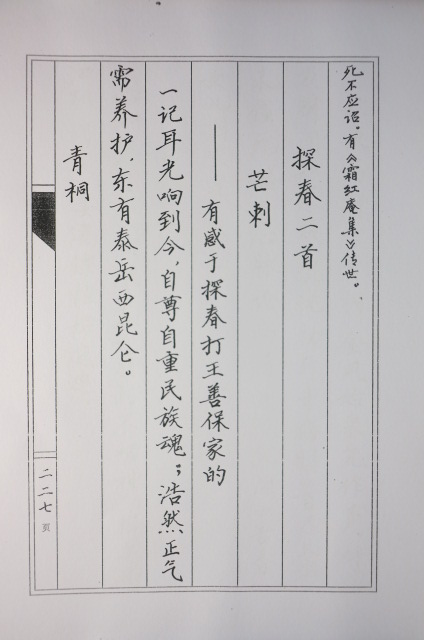 死不应诏。有《霜红庵集》传世。
探春二首
芒刺
——有感于探春打王善保家的
一记耳光响到今，自尊自重民族魂；浩然正气
需养护，东有泰岳西昆仑。
青桐
二二七页